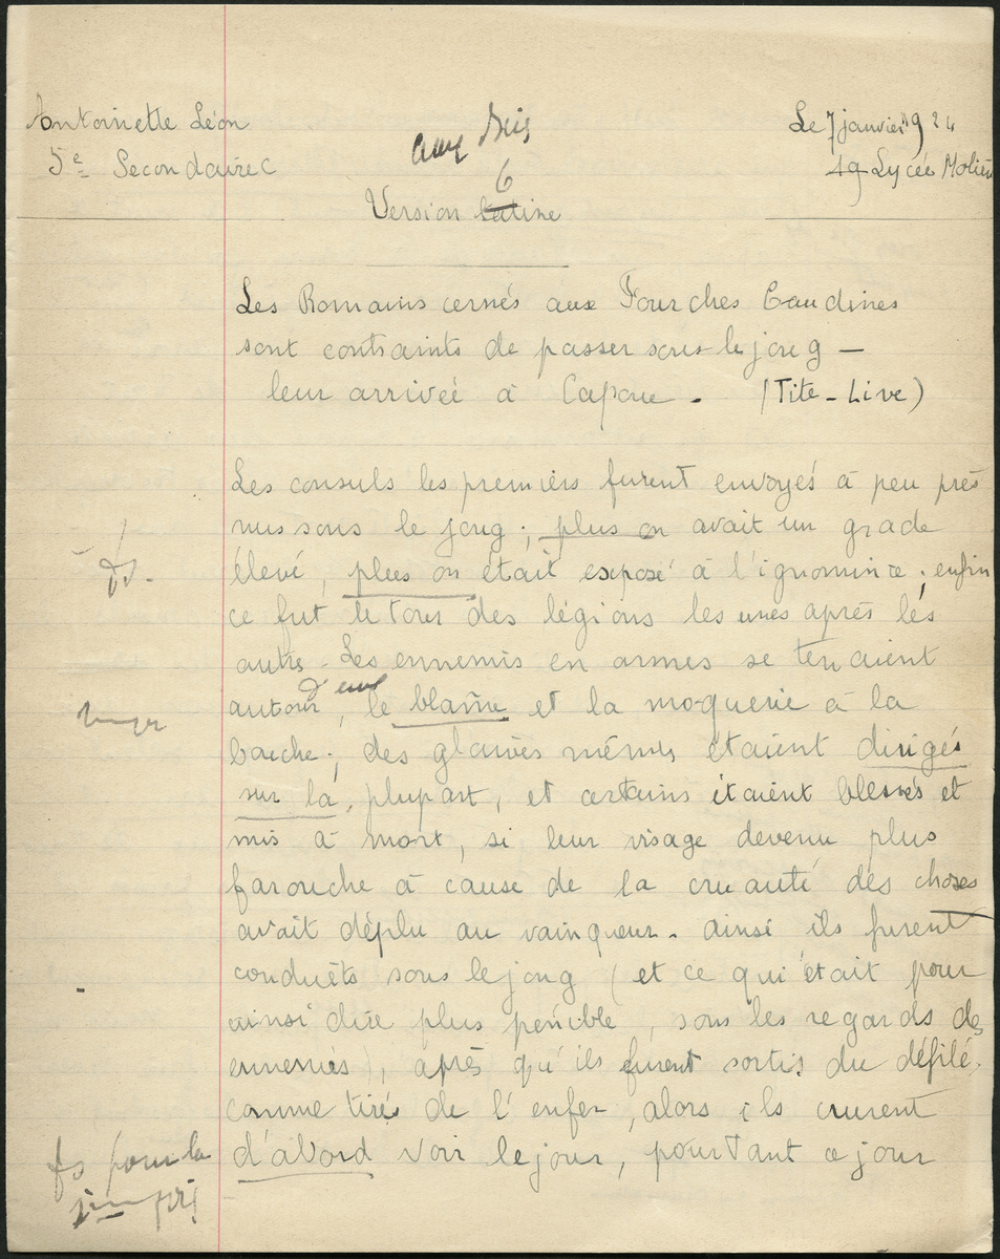 Antoinette Léon
5e Secondaire C
Le 7 janvier 1924
19 Lycée Molière
6
Version latine
Les Romains cernés aux Fourches Caudines
sont contraints de passer sous le joug —
leur arrivée à Capoue. (Tite-Live)
Les consuls les premiers furent envoyés à peu près
nus sous le joug ; plus on avait un grade
élevé, plus on était exposé à l'ignominie ; enfin
ce fut le tour des légions les unes après les
autres. Les ennemis en armes se tenaient
autour d'eux, le blâme et la moquerie à la
bouche ; des glaives mêmes étaient dirigés
sur la plupart, et certains étaient blessés et
mis à mort, si leur visage devenu plus
farouche à cause de la cruauté des choses
avait déplu au vainqueur. ainsi ils furent
conduits sous le joug (et ce qui était pour
ainsi dire plus pénible, sous les regards des
ennemis), après qu'ils furent sortis du défilé.
comme tirés de l'enfer, alors ils crurent
d'abord voir le jour, pourtant ce jour
fs pour la